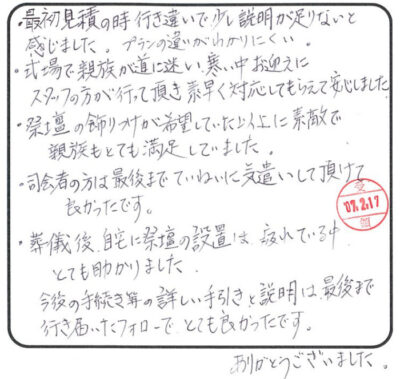 ・最初見積の時 行き違いで少し説明が足りないと
感じました。プランの違いがわかりにくい。
・式場で親族が道に迷い寒い中お迎えに
スタッフの方が行って頂き素早く対応してもらえて安心しました
・祭壇の飾りつけが希望していた以上に素敵で
親族もとても満足していました。
・司会者の方は最後までていねいに気遣いして頂けて
良かったです。
受
07.2.17
・葬儀後 自宅に祭壇の設置は、疲れている中
とても助かりました
今後の手続き等の詳しい手引きと説明は、最後まで
行き届いたフォローで とても良かったです。
ありがとうございました。